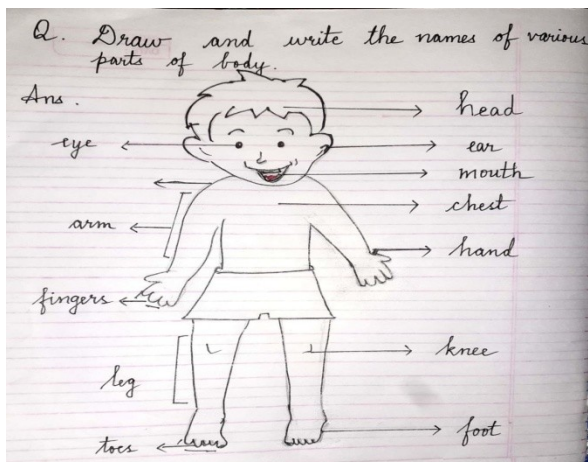 Q. Draw and write the names of various
parts of body.
Ans.
head
eye
ear
mouth
chest
arm
hand
fingers
knee
leg
foot
toes